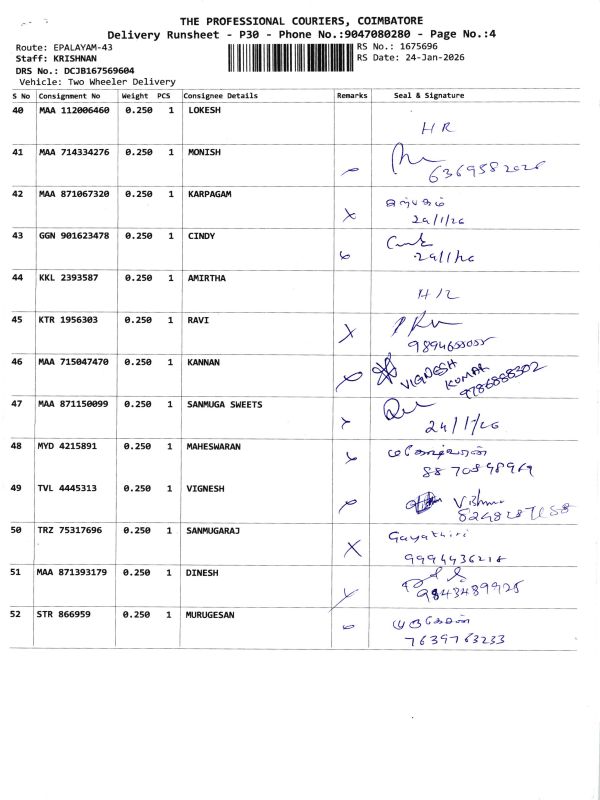 THE PROFESSIONAL COURIERS, COIMBATORE
Delivery Runsheet - P30 - Phone No.:9047080280 - Page No.:4
Route: EPALAYAM-43
Staff: KRISHNAN
DRS No.: DCJB167569604
Vehicle: Two Wheeler Delivery
RS No.: 1675696
RS Date: 24-Jan-2026
S No Consignment No Weight PCS Consignee Details Remarks Seal & Signature
40 MAA 112006460 0.250 1 LOKESH
HR
41 MAA 714334276 0.250 1 MONISH
42 MAA 871067320 0.250 1 KARPAGAM
கற்பகம்
24/1/26
43 GGN 901623478 0.250 1 CINDY
24/1/26
44 KKL 2393587 0.250 1 AMIRTHA
45 KTR 1956303 0.250 1 RAVI
46 MAA 715047470 0.250 1 KANNAN
VIGNESH
KUMAR
9786888302
47 MAA 871150099 0.250 1 SANMUGA SWEETS
24/1/26
48 MYD 4215891 0.250 1 MAHESWARAN
மகேஷ்வரன்
8870898969
49 TVL 4445313 0.250 1 VIGNESH
50 TRZ 75317696 0.250 1 SANMUGARAJ
Gayathiri
9994436218
51 MAA 871393179 0.250 1 DINESH
9843489925
52 STR 866959 0.250 1 MURUGESAN
முருகேசன்
7639763233